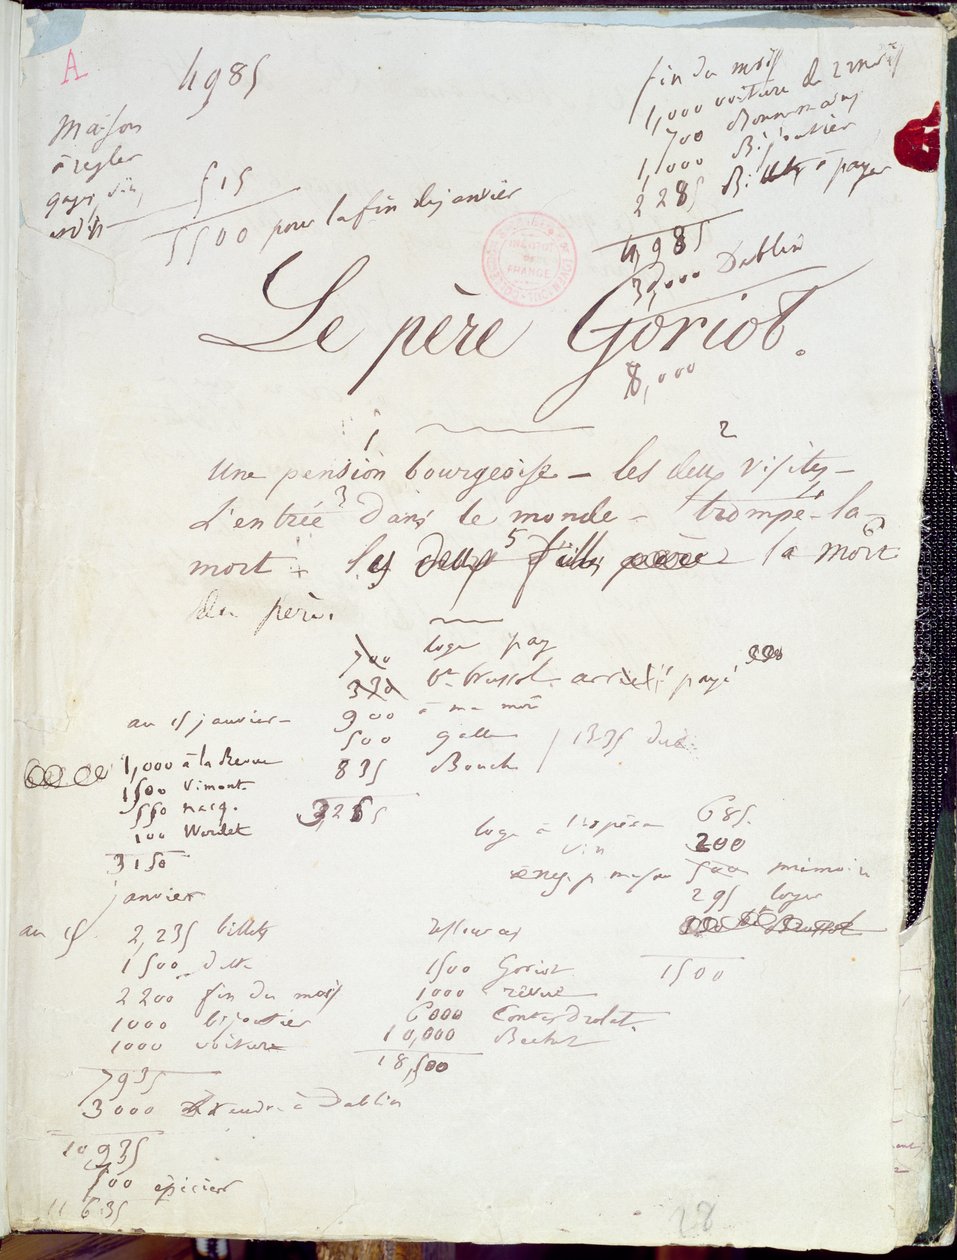 A
4985
Maison
à régler
gages, vin,
515
5500 pour la fin de janvier
fin du mois
1,000 voiture
700
1,000 Bijoutier
2285 Billets à payer
4,985
3,000 Dablin
INSTITUT DE FRANCE
Le père Goriot.
8,000
1
2
Une pension bourgeoise – les deux visites –
3
L'entrée dans le monde – trompe-la-
5
6
mort – les deux filles – la mort
du père.
700 loge pay
320 arriéré payé
au 15 janvier – 900 à ma mère
500
835 Bouch
1335 due
3,235
1,000 à la Revue
1500 Vimont.
550
100 Werdet
3150
loge à l'opéra 685.
vin 200
500 mémoire
295 loyer
1500
janvier
au 15
2,235 billets
1500 dette
2200 fin du mois
1000 bijoutier
1000 voiture
7935
3000 à rendre à Dablin
10,935
700 épicier
11 635
ressources
1500 Goriot
1000 revue
6000 Contes Drolat.
10,000 Bechet
18,500
28